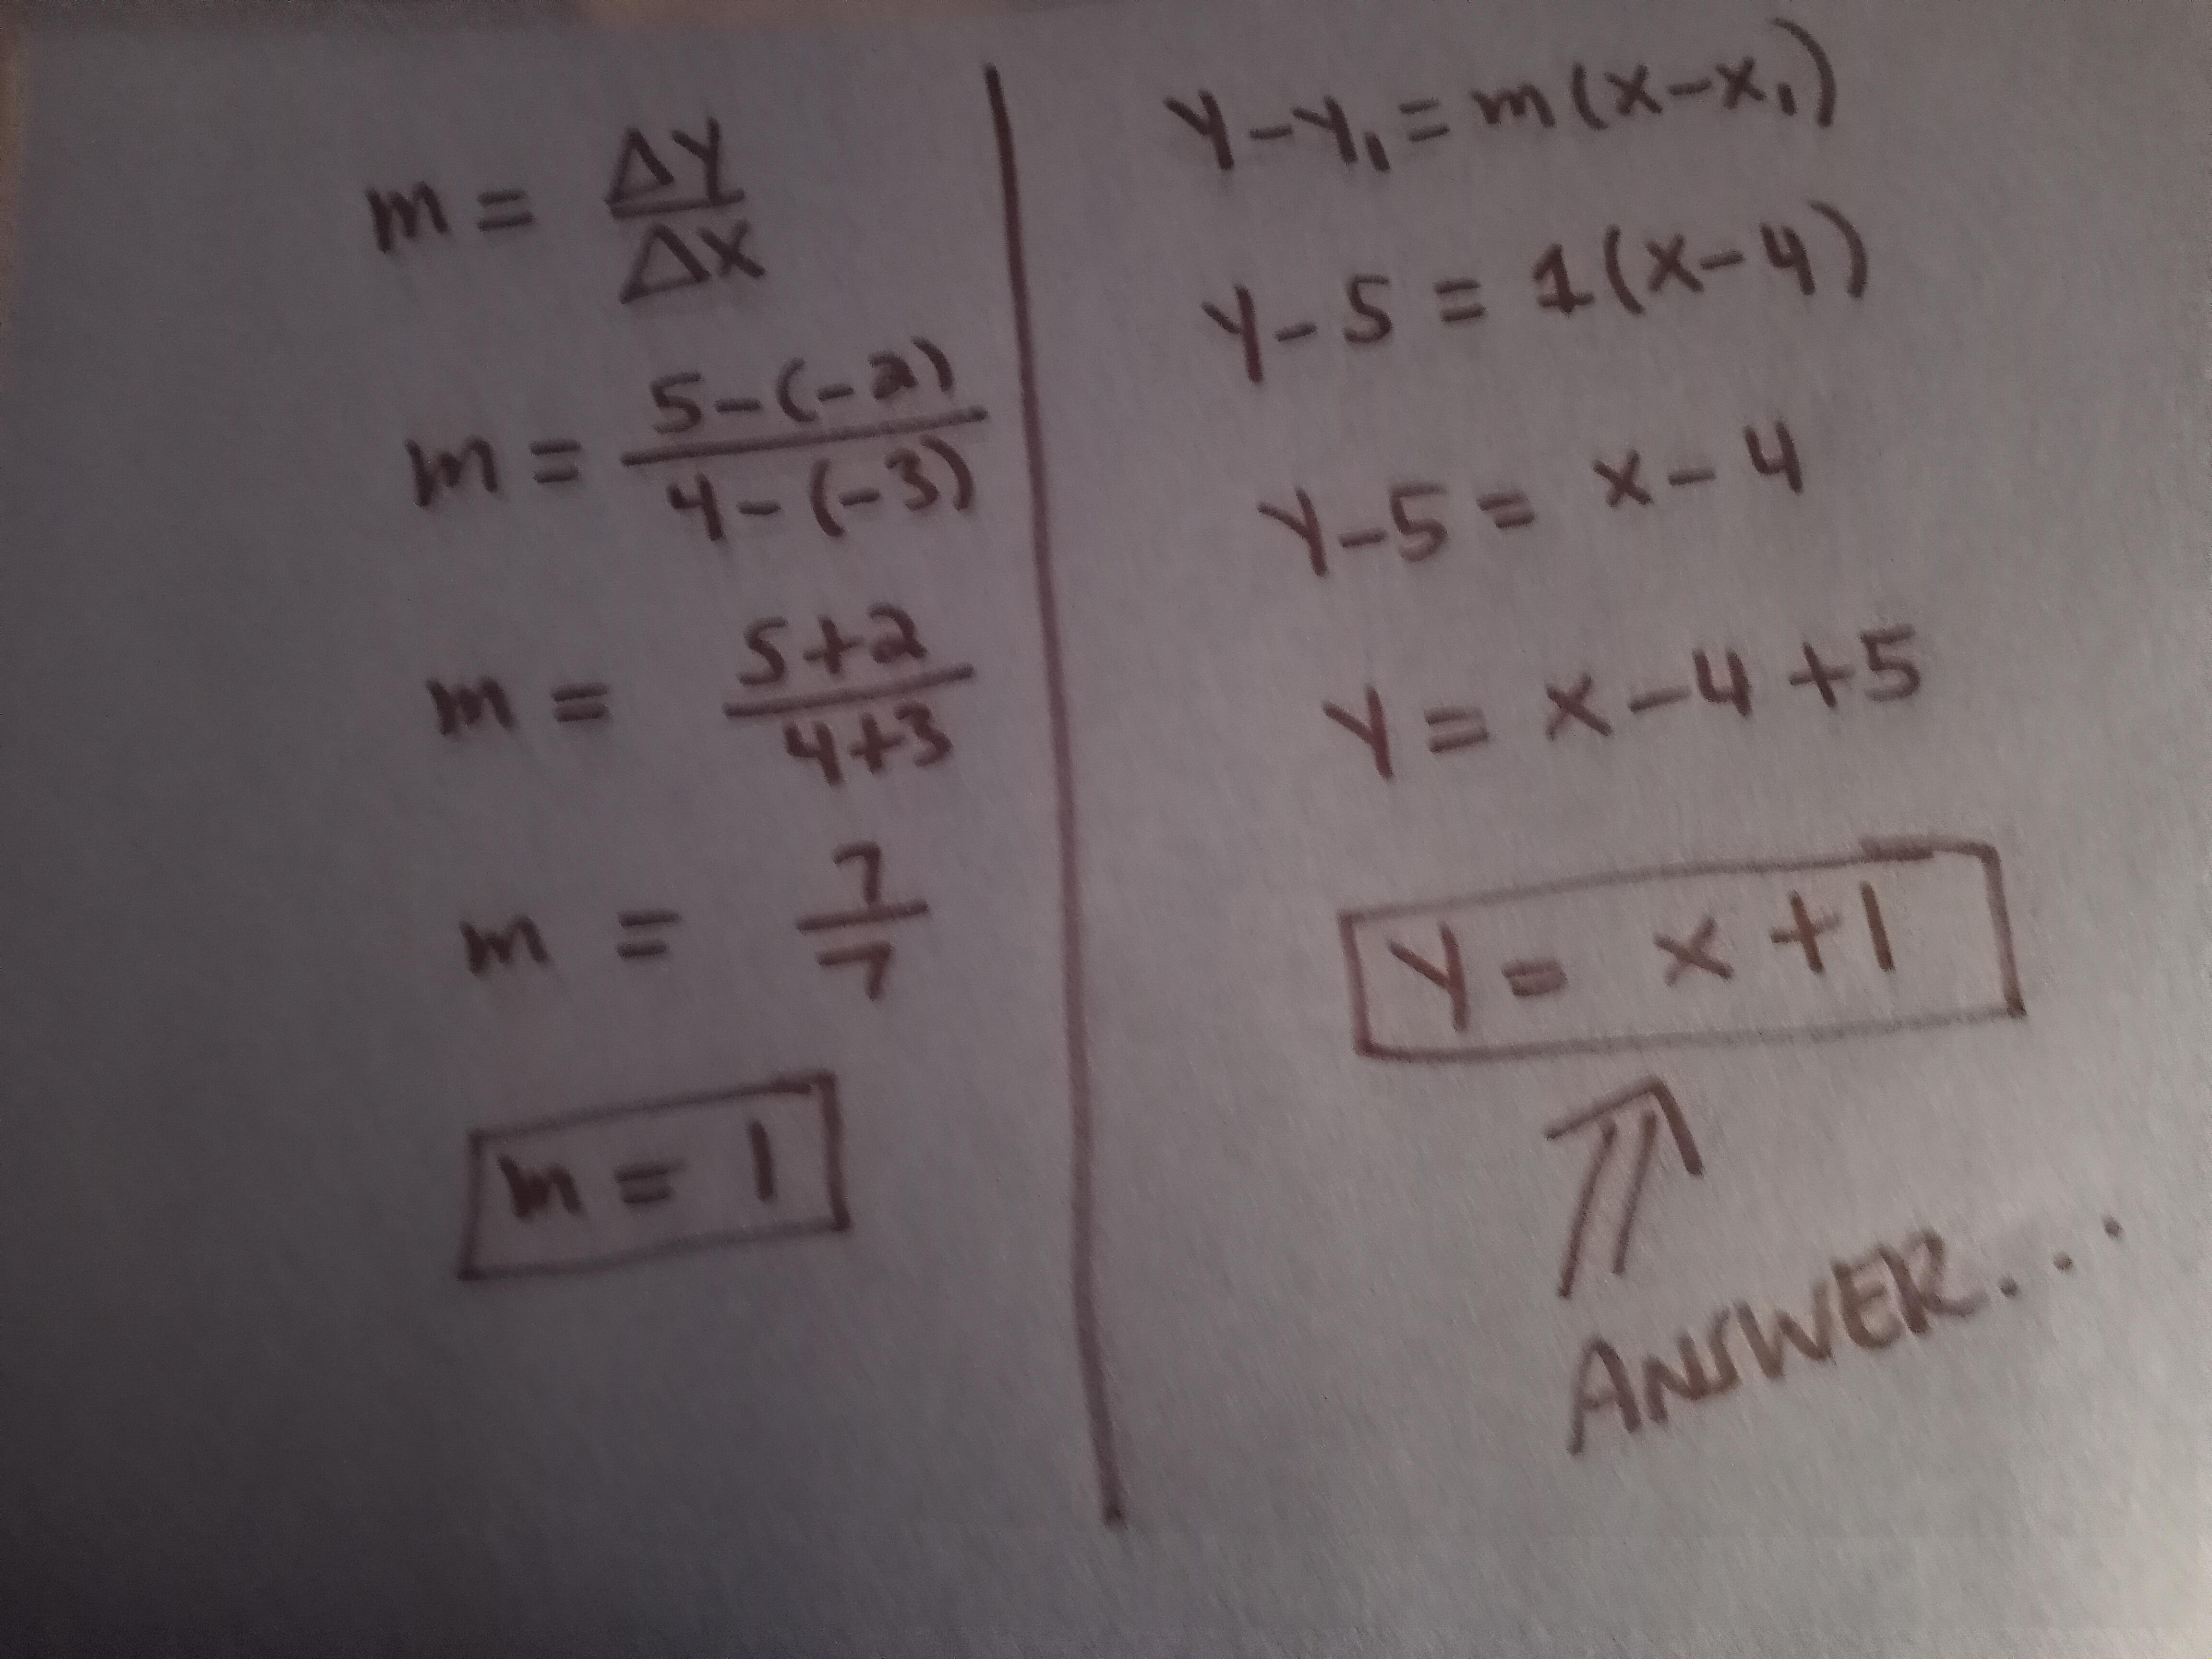 m = ΔY/ΔX
m = 5-(-2)/4-(-3)
m = 5+2/4+3
m = 7/7
m = 1
Y-Y₁ = m(x-x₁)
Y-5 = 1(x-4)
Y-5 = x-4
Y = x-4+5
Y = x+1
ANSWER...